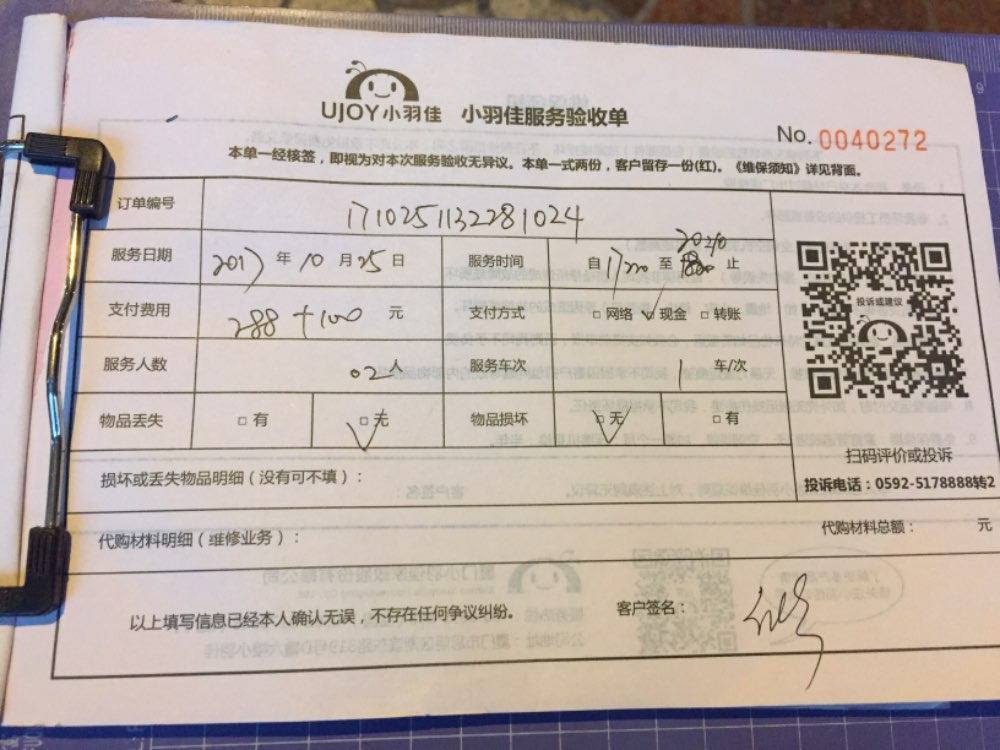 UJOY小羽佳 小羽佳服务验收单
No. 0040272
本单一经核签，即视为对本次服务验收无异议。本单一式两份，客户留存一份(红)。《维保须知》详见背面。
订单编号 1710251132281024
服务日期 2017 年 10 月 25 日 服务时间 自 1700 至 2020 止
支付费用 288+100 元 支付方式 □ 网络 ✓ 现金 □ 转账
服务人数 02 人 服务车次 1 车/次
物品丢失 □ 有 □ 无 ✓ 物品损坏 □ 无 ✓ □ 有
投诉或建议
扫码评价或投诉
投诉电话：0592-5178888转2
损坏或丢失物品明细（没有可不填）：
代购材料明细（维修业务）： 代购材料总额： 元
以上填写信息已经本人确认无误，不存在任何争议纠纷。 客户签名：